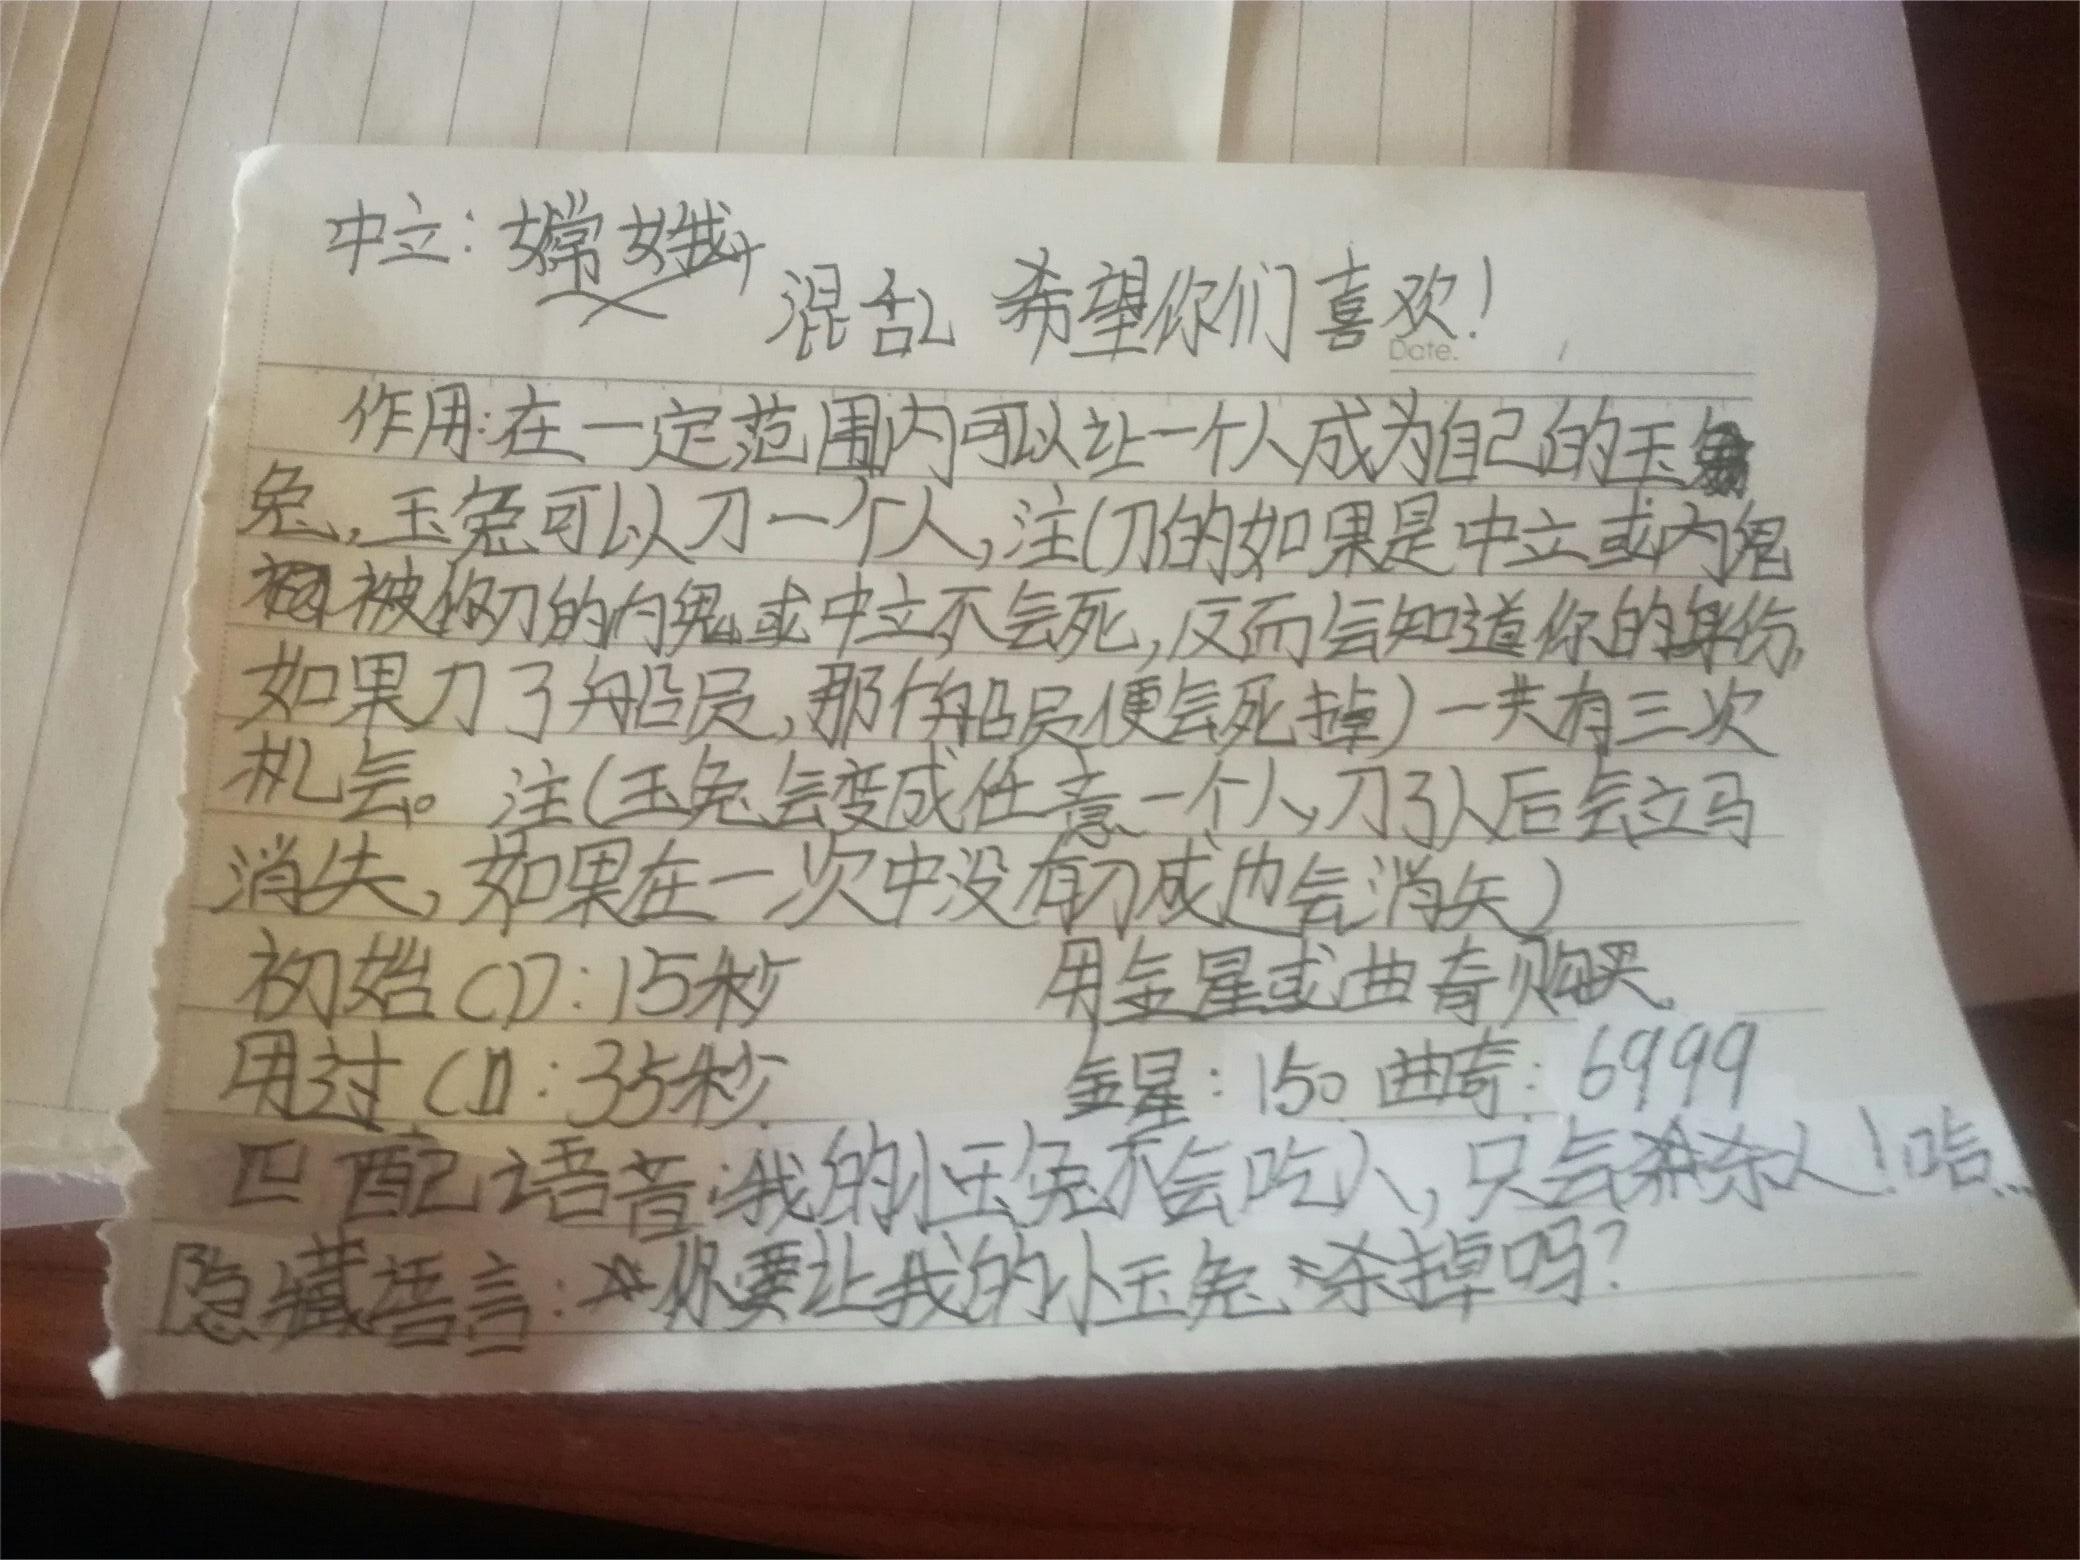 中立：嫦娥
混乱 希望你们喜欢！
Date.
作用：在一定范围内可以让一个人成为自己的玉
兔，玉兔可以刀一个人，注（刀的如果是中立或内鬼
被你刀的内鬼或中立不会死，反而会知道你的身份，
如果刀了船员，那船员便会死掉）一共有三次
机会。注（玉兔会变成任意一个人，刀了人后会立马
消失，如果在一次中没有刀成也会消失）
初始CD：15秒 用金星或曲奇购买。
用过CD：35秒 金星：150 曲奇：6999
匹配语音：我的小玉兔不会吃人，只会杀人！哈...
隐藏语言：你要让我的小玉兔杀掉吗？